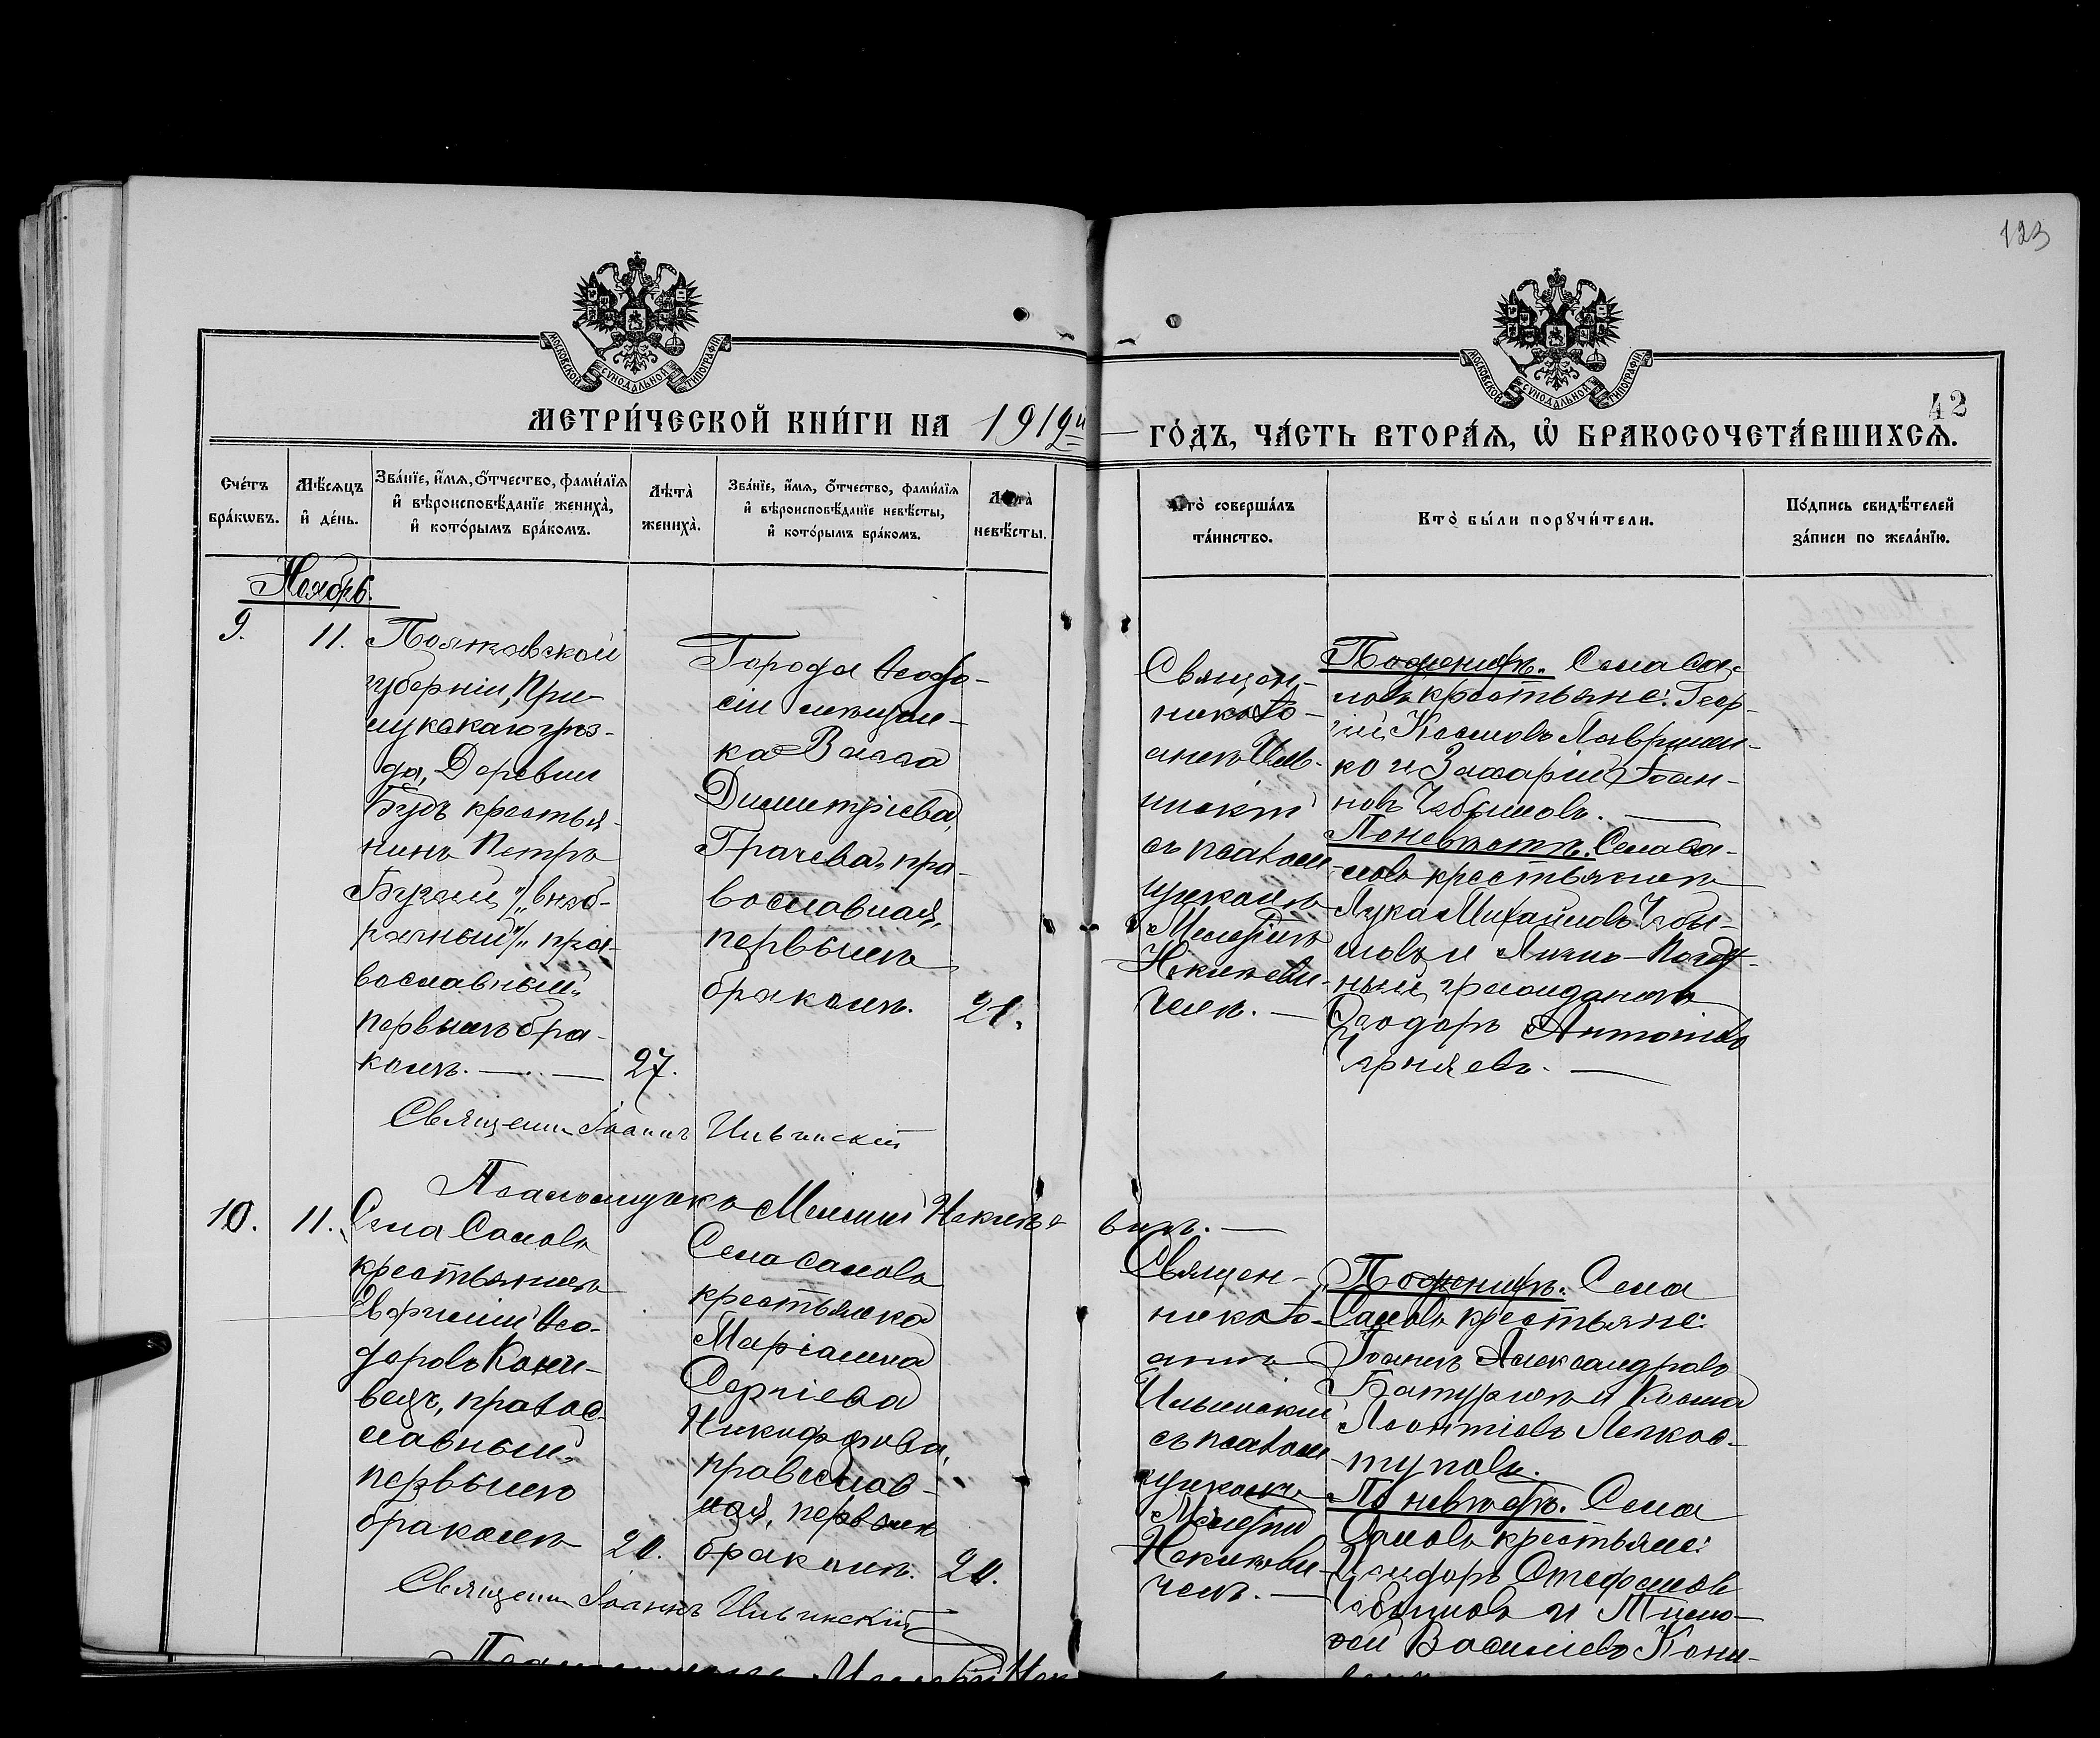 123
МОСКОВСКОЙ СѴНОДАЛЬНОЙ ТИПОГРАФІИ
МОСКОВСКОЙ СѴНОДАЛЬНОЙ ТИПОГРАФІИ
42
МЕТРИ́ЧЕСКОЙ КНИ́ГИ НА 1912й
ГО́ДЪ, ЧА́СТЬ ВТОРА́Ѧ, Ѽ БРАКОСОЧЕТА́ВШИХСѦ.
Сче́тъ
бра́кѡвъ.
Мѣ́сѧцъ
и҆ де́нь.
Зва́нїе, и҆́мѧ, о҆́тчество, фами́лїѧ
и҆ вѣроисповѣ́данїе жениха̀,
и҆ кото́рымъ бра́комъ.
Лѣта̀
жениха̀.
Зва́нїе, и҆́мѧ, о҆́тчество, фами́лїѧ
и҆ вѣроисповѣ́данїе невѣ́сты,
и҆ кото́рымъ бра́комъ.
Лѣта̀
невѣ́сты.
Кто̀ соверша́лъ
та́инство.
Кто̀ бы́ли порꙋчи́тели.
По́дпись свидѣ́телей
за́писи по жела́нїю.
Ноябрь.
9.
11.
Полтавской
губерніи, При
лукскаго уѣз-
да, Деревни
Будъ крестья-
нинъ Петръ
вослав­ный,
первымъ бра-
комъ.
27.
Города Ѳеодо-
сіи мѣщан-
ка Васса
Димитріева
Грачева, пра-
вославная,
первымъ
бракомъ.
21.
Священ-
никъ Іо-
аннъ Иль-
инскій
съ псалом-
щикомъ
Мелетіемъ
чемъ.
По женихѣ: Села Са-
мовъ крестьяне: Геор-
гій Космовъ Лавринен-
ко и Захарій Іоан-
новъ
По невѣстѣ: Села Са-
мовъ крестьянинъ
Лука Михайловъ
мовъ и Лично-Почет-
ный гражданинъ
Ѳеодоръ Антоніевъ
Черняевъ.
Священникъ Іоаннъ Ильинскій
Псаломщикъ Мелетій
10.
11.
Села Самовъ
крестьянинъ
Евфимій Ѳео-
доровъ Кони-
вецъ, правос-
лавный,
первымъ
бракомъ
20.
Села Самовъ
крестьянка
Маріамна
Сергіева
Никифорова,
православ-
ная, первымъ
бракомъ.
20.
Священ-
никъ Іо-
аннъ
Ильинскій
съ псалом-
щикомъ
Мелетіемъ
чемъ.
По женихѣ: Села
Самовъ крестьяне:
Іоаннъ Александровъ
Батуринъ и Косма
Леонтіевъ Легкос-
туповъ.
По невѣстѣ: Села
Самовъ крестьяне:
Исидоръ Стефановъ
и Тимо-
ѳей Василіевъ Кони-
Священникъ Іоаннъ Ильинскій
Псаломщикъ Мелетій